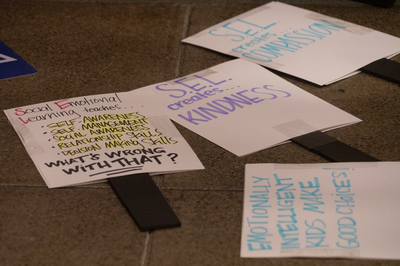 SEL
creates
COMPASSION
SEL...
creates...
KINDNESS
Social Emotional
Learning teaches...
• SELF AWARENESS
• SELF MANAGEMENT
• SOCIAL AWARENESS
• RELATIONSHIP SKILLS
• DECISION MAKING SKILLS
WHAT'S WRONG
WITH THAT?
EMOTIONALLY
INTELLIGENT
KIDS MAKE
GOOD CHOICES!